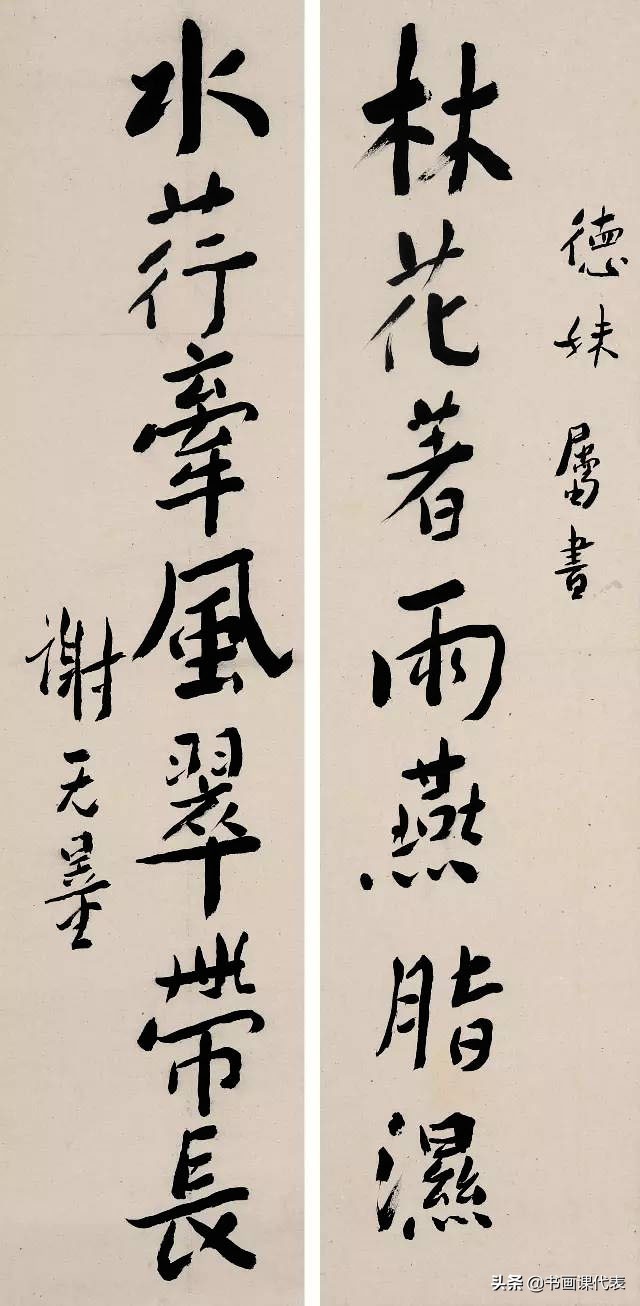 德妹屬書
林花著雨燕脂濕
水荇牽風翠帶長
謝无量
头条 @书画课代表